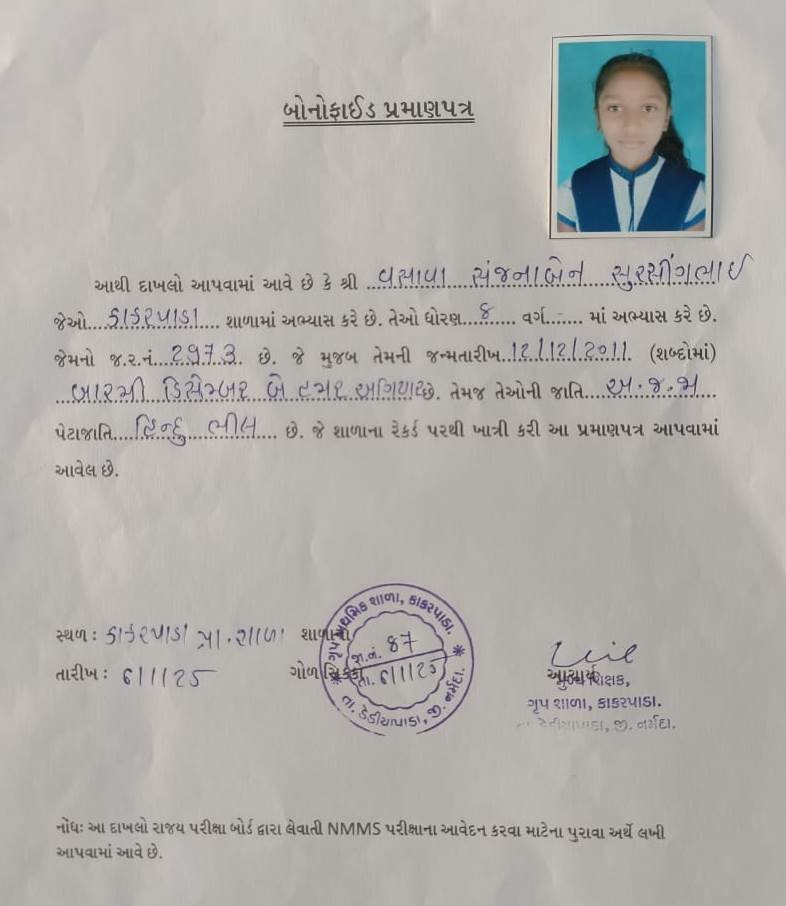 બોનોફાઈડ પ્રમાણપત્ર
આથી દાખલો આપવામાં આવે છે કે શ્રી વસાવા સંજનાબેન સુરસીંગભાઈ
જેઓ કાકરપાડા શાળામાં અભ્યાસ કરે છે. તેઓ ધોરણ 8 વર્ગ - માં અભ્યાસ કરે છે.
જેમનો જ.ર.નં. 2973 છે. જે મુજબ તેમની જન્મતારીખ 12/12/2011 (શબ્દોમાં)
બારમી ડિસેમ્બર બે હજાર અગિયાર છે. તેમજ તેઓની જાતિ અ.જ.જા
પેટાજાતિ હિન્દુ ભીલ છે. જે શાળાના રેકર્ડ પરથી ખાત્રી કરી આ પ્રમાણપત્ર આપવામાં
આવેલ છે.
સ્થળ: કાકરપાડા પ્રા.શાળા શાળાનો
તારીખ: 6/1/25 ગોળ સિક્કો
ગૃપ પ્રાથમિક શાળા, કાકરપાડા.
જા.નં. 87
તા. 6/1/25
તા. ડેડીયાપાડા, જી. નર્મદા.
આચાર્ય
મુખ્ય શિક્ષક,
ગૃપ શાળા, કાકરપાડા.
તા. ડેડીયાપાડા, જી. નર્મદા.
નોંધ: આ દાખલો રાજ્ય પરીક્ષા બોર્ડ દ્વારા લેવાતી NMMS પરીક્ષાના આવેદન કરવા માટેના પુરાવા અર્થે લખી
આપવામાં આવે છે.